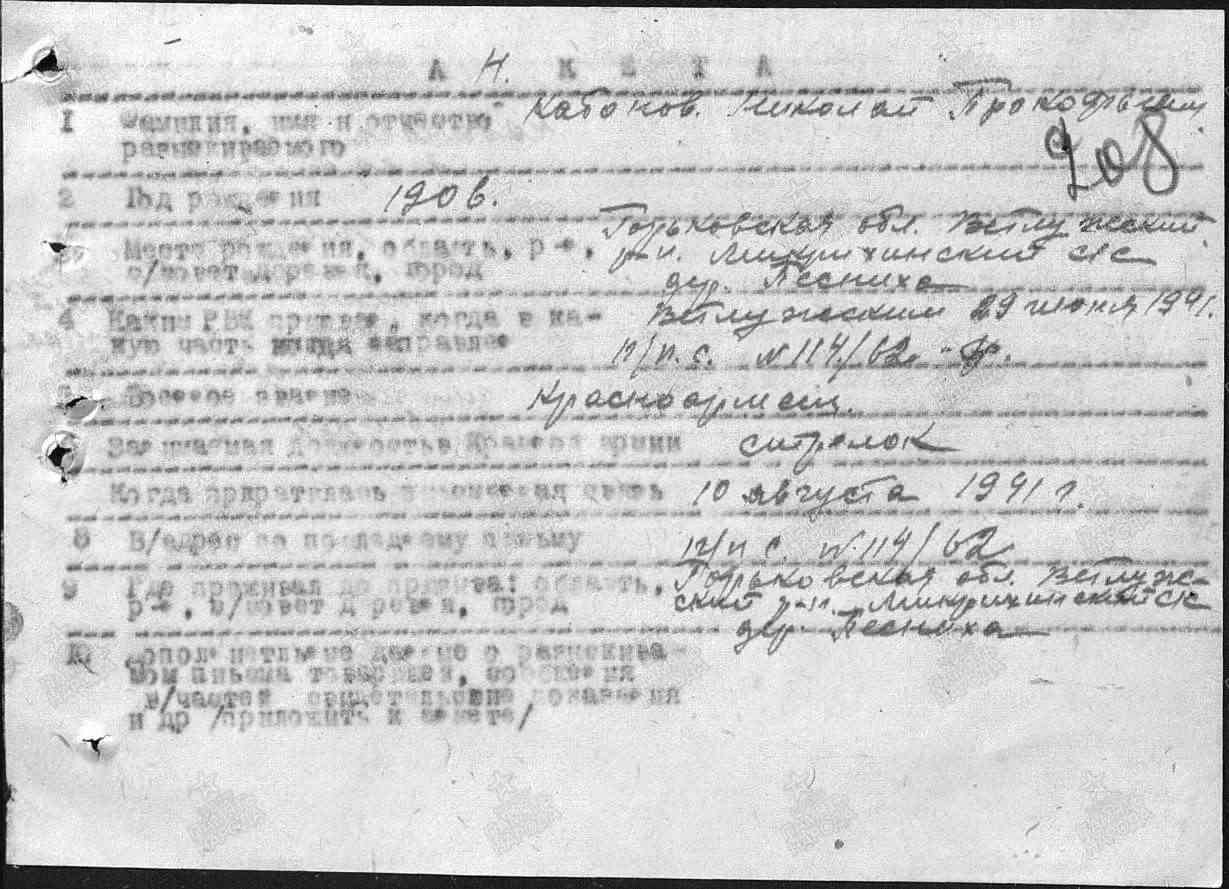 АНКЕТА
1 Фамилия, имя и отчество Кабонов. Николай Прокофьевич
разыскиваемого
208
2 Год рождения 1906.
Место рождения, область, р-н, Горьковская обл. Ветлужский
с/совет деревня, город р-н. Микрихинский с/с
дер. Песниха
4 Каким РВК призван, когда в ка- Ветлужский 29 июня 1941.
кую часть направлен п/п.с. №114/62
Военное звание Красноармеец.
Занимаемая должность в Красной армии стрелок
Когда прекратилась письменная связь 10 августа 1941 г.
8 В/адрес по последнему письму п/п с. №.114/62
9 Где проживал до призыва: область, Горьковская обл. Ветлуж-
р-н, с/совет деревня, город ский р-н. Микрихинский с/с
дер. Песниха
10 Дополнительные данные о разыскивае-
мом письма товарищей, сообщения
в/частей свидетельские показания
и др /приложить к анкете/